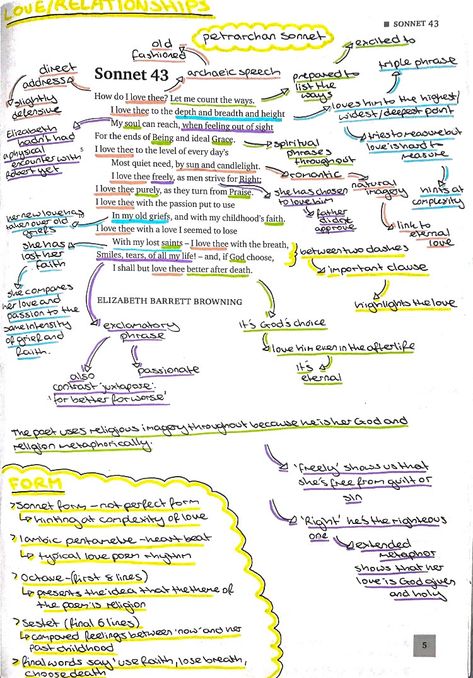 LOVE/RELATIONSHIPS
■ SONNET 43
petrarchan sonnet
old
fashioned
archaeic speech
excited to
prepared to
list the
ways
triple phrase
direct
address
slightly
defensive
Elizabeth
hadn't had
a physical
encounter with
Robert yet
Sonnet 43
How do I love thee? Let me count the ways.
I love thee to the depth and breadth and height
My soul can reach, when feeling out of sight
For the ends of Being and ideal Grace.
5 I love thee to the level of every day's
Most quiet need, by sun and candlelight.
I love thee freely, as men strive for Right;
I love thee purely, as they turn from Praise.
I love thee with the passion put to use
In my old griefs, and with my childhood's faith.
I love thee with a love I seemed to lose
With my lost saints – I love thee with the breath,
Smiles, tears, of all my life! – and, if God choose,
I shall but love thee better after death.
ELIZABETH BARRETT BROWNING
loves him to the highest/
widest/deepest point
tries to measure but
love is hard to
measure
spiritual
phrases
throughout
romantic
natural
imagery
hints at
complexity
she has chosen
to love him
father
didn't
approve
link to
eternal
love
between two dashes
important clause
highlights the love
her new love has
taken over old
griefs
she has
lost her
faith
she compares
her love and
passion to the
same intensity
of grief and
faith.
exclamatory
phrase
also
contrast 'juxtapose'
'for better for worse'
passionate
it's God's choice
love him even in the afterlife
it's
eternal
The poet uses religious imagery throughout because he is her God and
religion metaphorically.
'freely' shows us that
she's free from guilt or
sin
'Right' he's the righteous
one
extended
metaphor
shows that her
love is God given
and holy
FORM
> Sonnet form – not perfect form
↳ hinting at complexity of love
> Iambic pentametre – heart beat
↳ typical love poem rhythm
> Octave – (first 8 lines)
↳ presents the idea that the theme of
the poem is religion
> Sestet (final 6 lines)
↳ compared feelings between 'now' and her
past childhood
> final words say 'use faith, lose breath,
choose death
5